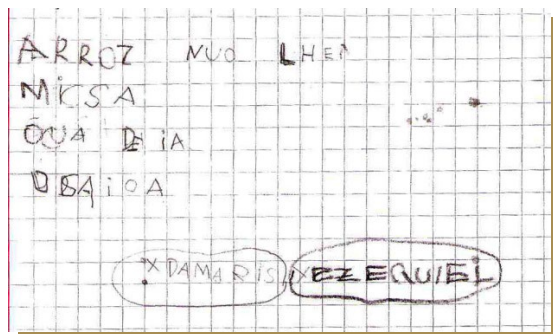 ARROZ NUO LHEN
MICSA
OUA DE iA
DSAiOA
X DAMARIS X EZEQUIEL